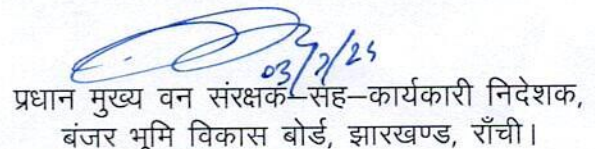 03/7/25
प्रधान मुख्य वन संरक्षक–सह–कार्यकारी निदेशक,
बंजर भूमि विकास बोर्ड, झारखण्ड, राँची।